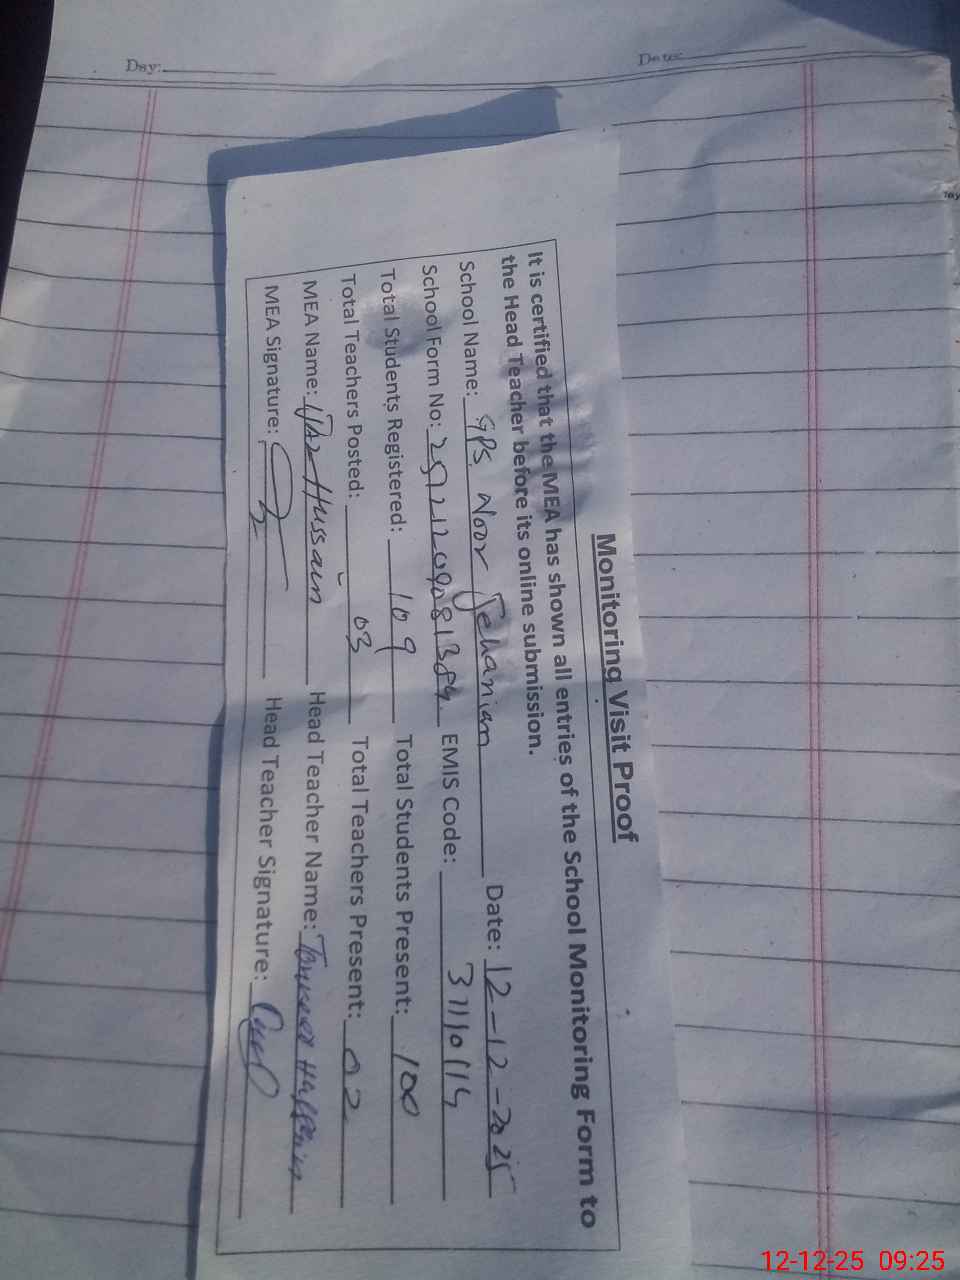 Day:
Date:
Monitoring Visit Proof
It is certified that the MEA has shown all entries of the School Monitoring Form to
the Head Teacher before its online submission.
School Name: GPS Noor Jehanian Date: 12-12-2025
School Form No: EMIS Code: 31110114
Total Students Registered: 109 Total Students Present: 100
Total Teachers Posted: 03 Total Teachers Present: 02
MEA Name: Hussain Head Teacher Name:
MEA Signature: Head Teacher Signature:
12-12-25 09:25